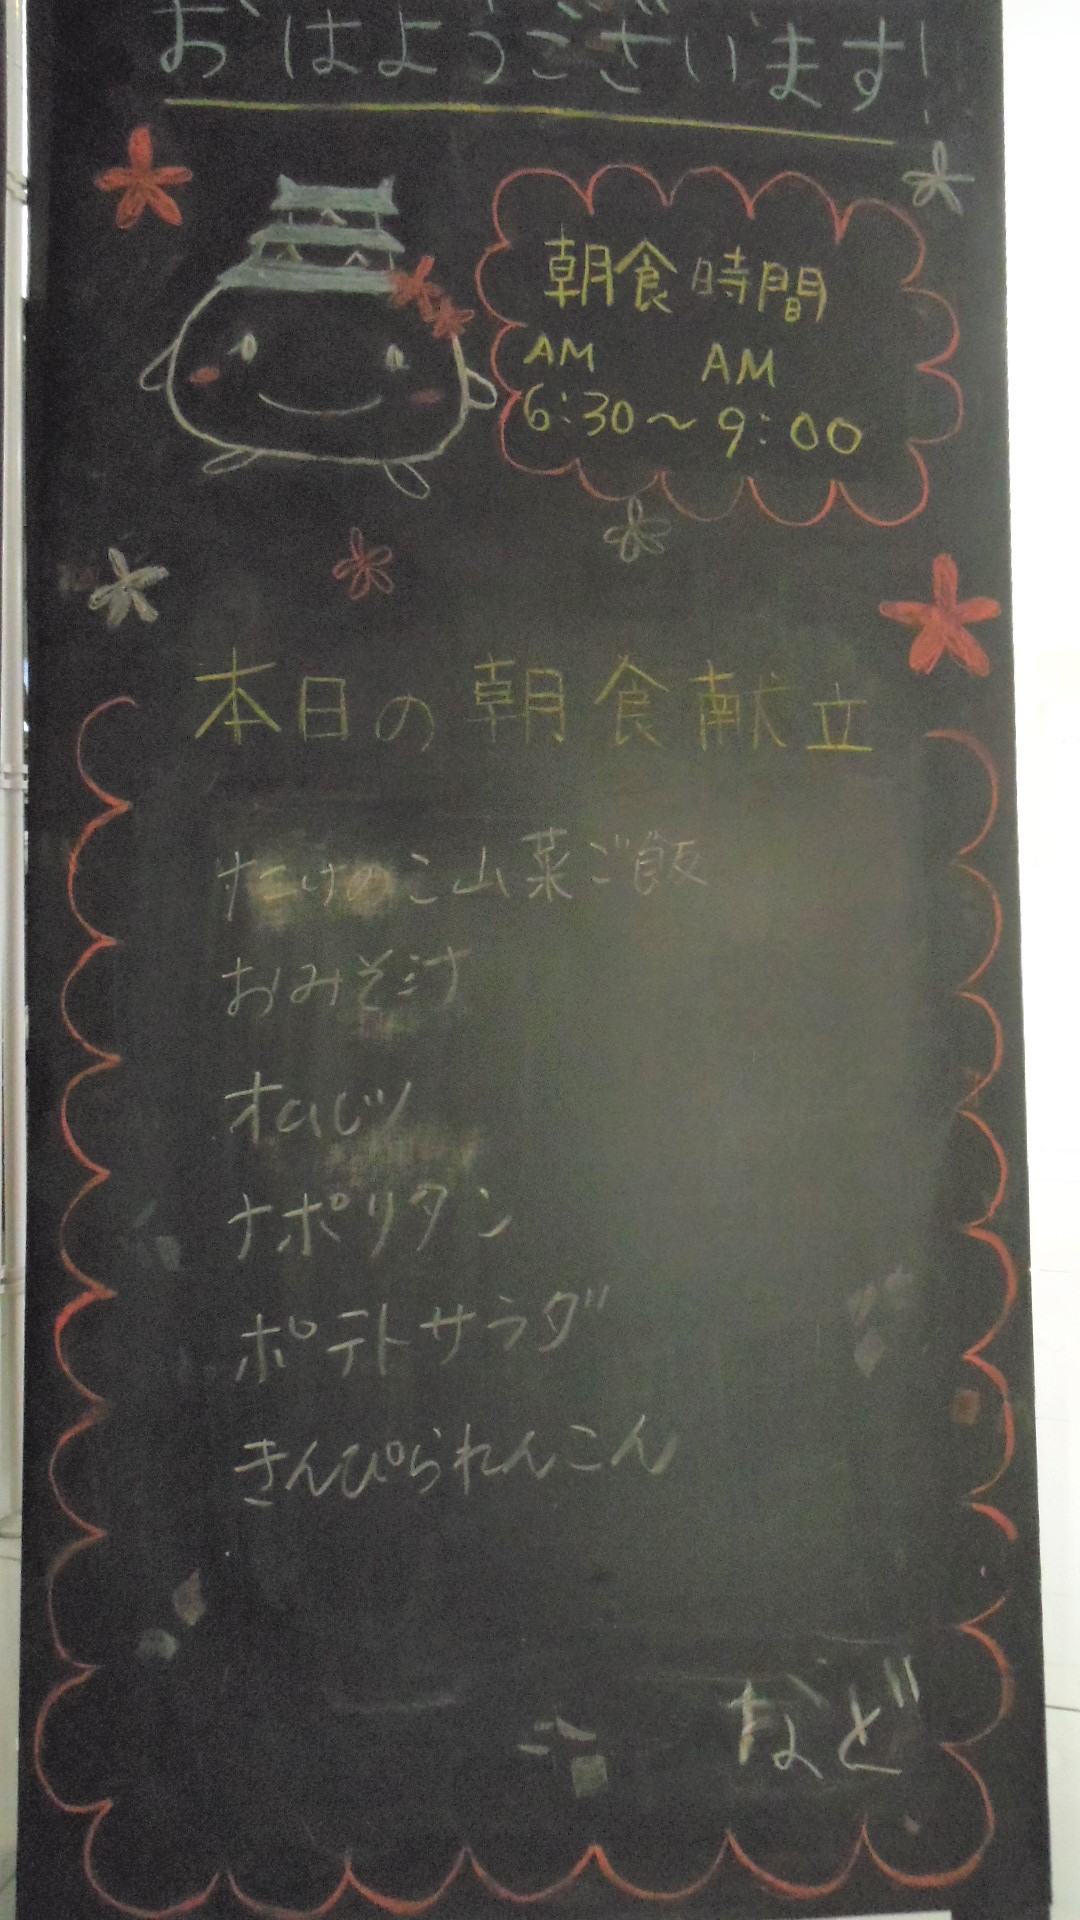 おはようございます!
朝食時間
AM AM
6:30～9:00
本日の朝食献立
たけのこ山菜ご飯
おみそ汁
オムレツ
ナポリタン
ポテトサラダ
きんぴられんこん
など